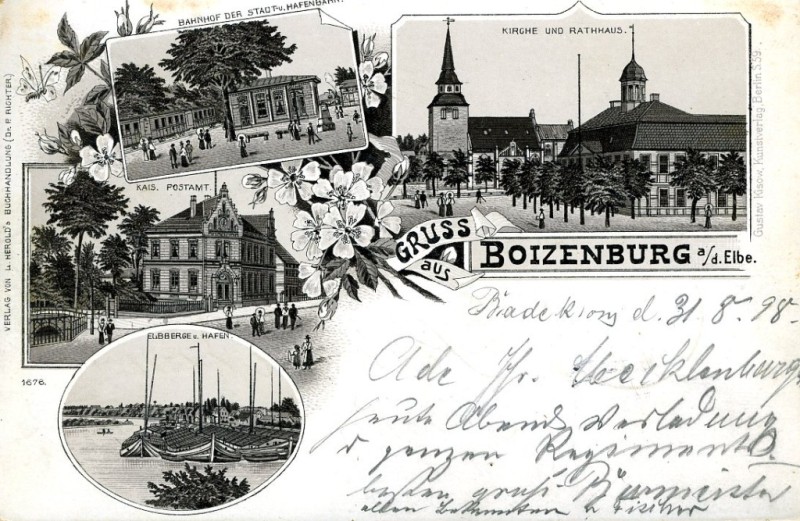 BAHNHOF DER STADT- U. HAFENBAHN.
KIRCHE UND RATHHAUS.
KAIS. POSTAMT.
GRUSS
aus
BOIZENBURG a/d. Elbe.
ELBBERGE U. HAFEN.
1676.
VERLAG VON L. HEROLD'S BUCHHANDLUNG (DR. P. RICHTER)
Gustav Kisow, Kunstverlag, Berlin S.59.
d. 31 8. 98.
Ade Mecklenburg
heute Abend Verladung
d. ganzen Regiments.
besten Gruß
allen Bekannten